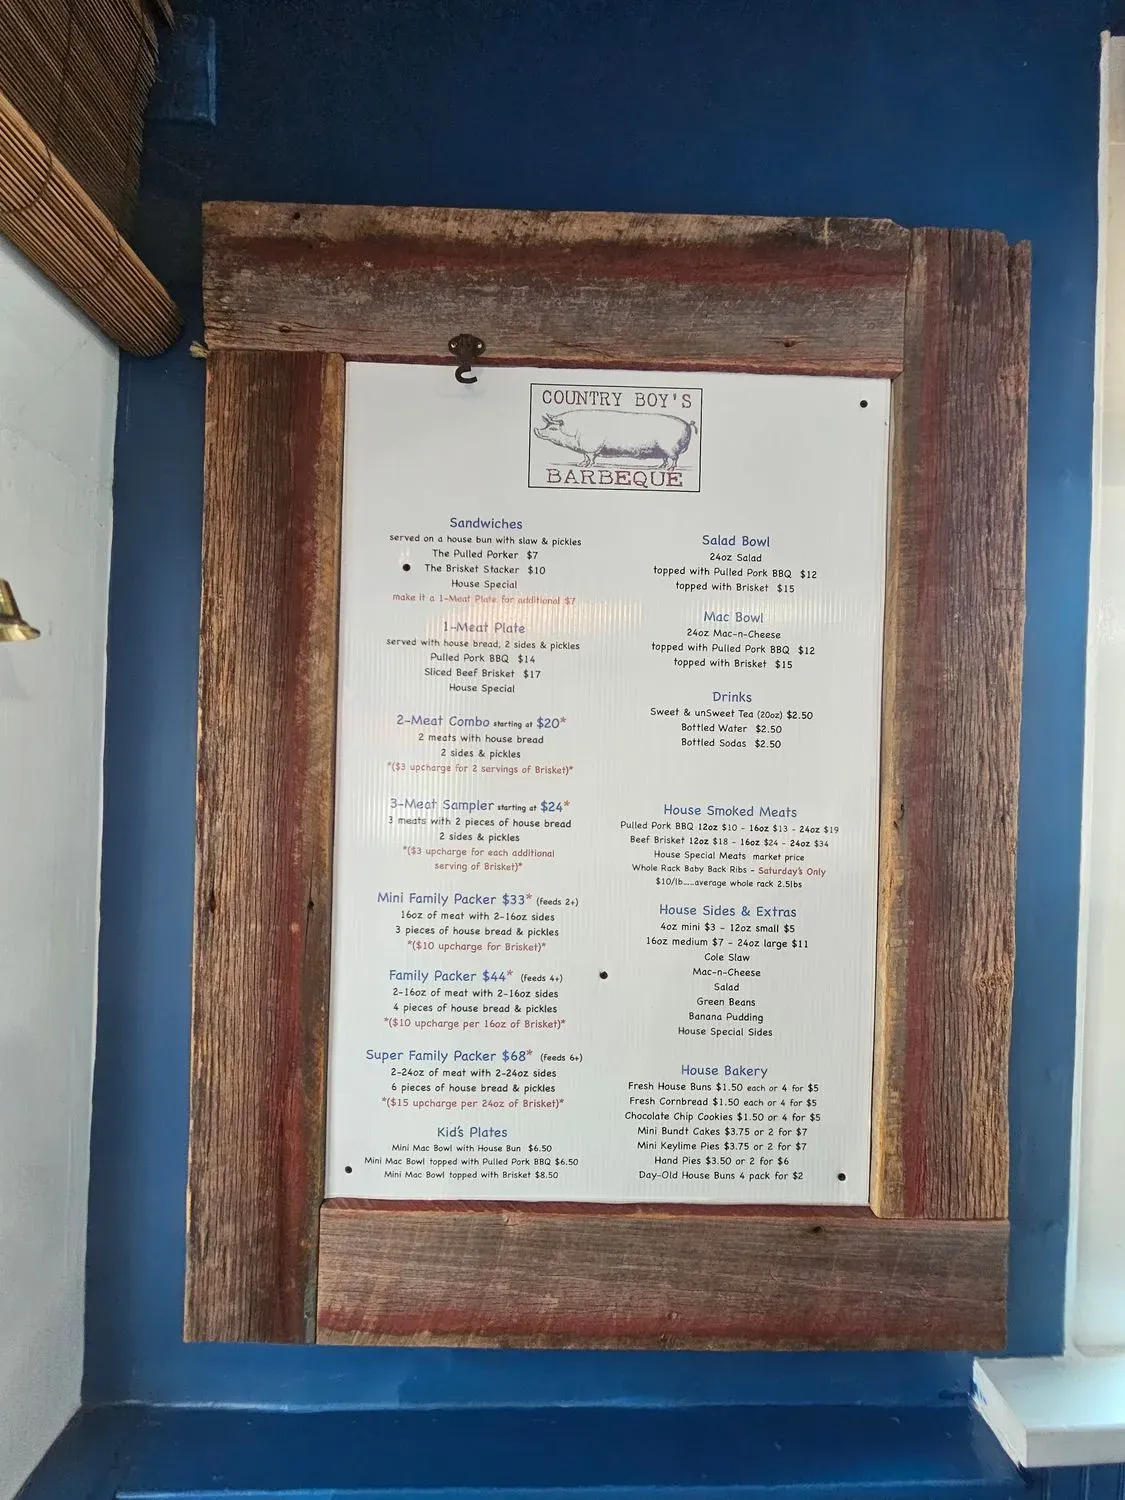 COUNTRY BOY'S
BARBEQUE
Sandwiches
served on a house bun with slaw & pickles
The Pulled Porker $7
The Brisket Stacker $10
House Special
make it a 1-Meat Plate for additional $7
1-Meat Plate
served with house bread, 2 sides & pickles
Pulled Pork BBQ $14
Sliced Beef Brisket $17
House Special
2-Meat Combo starting at $20*
2 meats with house bread
2 sides & pickles
*($3 upcharge for 2 servings of Brisket)*
3-Meat Sampler starting at $24*
3 meats with 2 pieces of house bread
2 sides & pickles
*($3 upcharge for each additional
serving of Brisket)*
Mini Family Packer $33* (feeds 2+)
16oz of meat with 2-16oz sides
3 pieces of house bread & pickles
*($10 upcharge for Brisket)*
Family Packer $44* (feeds 4+)
2-16oz of meat with 2-16oz sides
4 pieces of house bread & pickles
*($10 upcharge per 16oz of Brisket)*
Super Family Packer $68* (feeds 6+)
2-24oz of meat with 2-24oz sides
6 pieces of house bread & pickles
*($15 upcharge per 24oz of Brisket)*
Kid's Plates
Mini Mac Bowl with House Bun $6.50
Mini Mac Bowl topped with Pulled Pork BBQ $6.50
Mini Mac Bowl topped with Brisket $8.50
Salad Bowl
24oz Salad
topped with Pulled Pork BBQ $12
topped with Brisket $15
Mac Bowl
24oz Mac-n-Cheese
topped with Pulled Pork BBQ $12
topped with Brisket $15
Drinks
Sweet & unSweet Tea (20oz) $2.50
Bottled Water $2.50
Bottled Sodas $2.50
House Smoked Meats
Pulled Pork BBQ 12oz $10 - 16oz $13 - 24oz $19
Beef Brisket 12oz $18 - 16oz $24 - 24oz $34
House Special Meats market price
Whole Rack Baby Back Ribs - Saturday's Only
$10/lb.....average whole rack 2.5lbs
House Sides & Extras
4oz mini $3 - 12oz small $5
16oz medium $7 - 24oz large $11
Cole Slaw
Mac-n-Cheese
Salad
Green Beans
Banana Pudding
House Special Sides
House Bakery
Fresh House Buns $1.50 each or 4 for $5
Fresh Cornbread $1.50 each or 4 for $5
Chocolate Chip Cookies $1.50 or 4 for $5
Mini Bundt Cakes $3.75 or 2 for $7
Mini Keylime Pies $3.75 or 2 for $7
Hand Pies $3.50 or 2 for $6
Day-Old House Buns 4 pack for $2